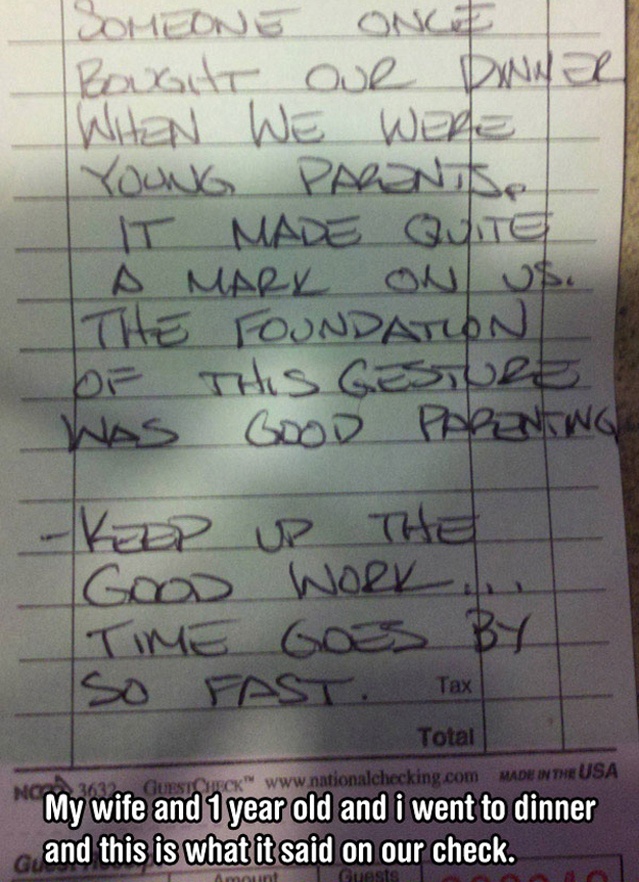 SOMEONE ONCE
BOUGHT OUR DINNER
WHEN WE WERE
YOUNG PARENTS.
IT MADE QUITE
A MARK ON US.
THE FOUNDATION
OF THIS GESTURE
WAS GOOD PARENTING
- KEEP UP THE
GOOD WORK...
TIME GOES BY
SO FAST. Tax
Total
3632 GUESTCHECK™ www.nationalchecking.com MADE IN THE USA
My wife and 1 year old and i went to dinner
and this is what it said on our check.
Amount Guests